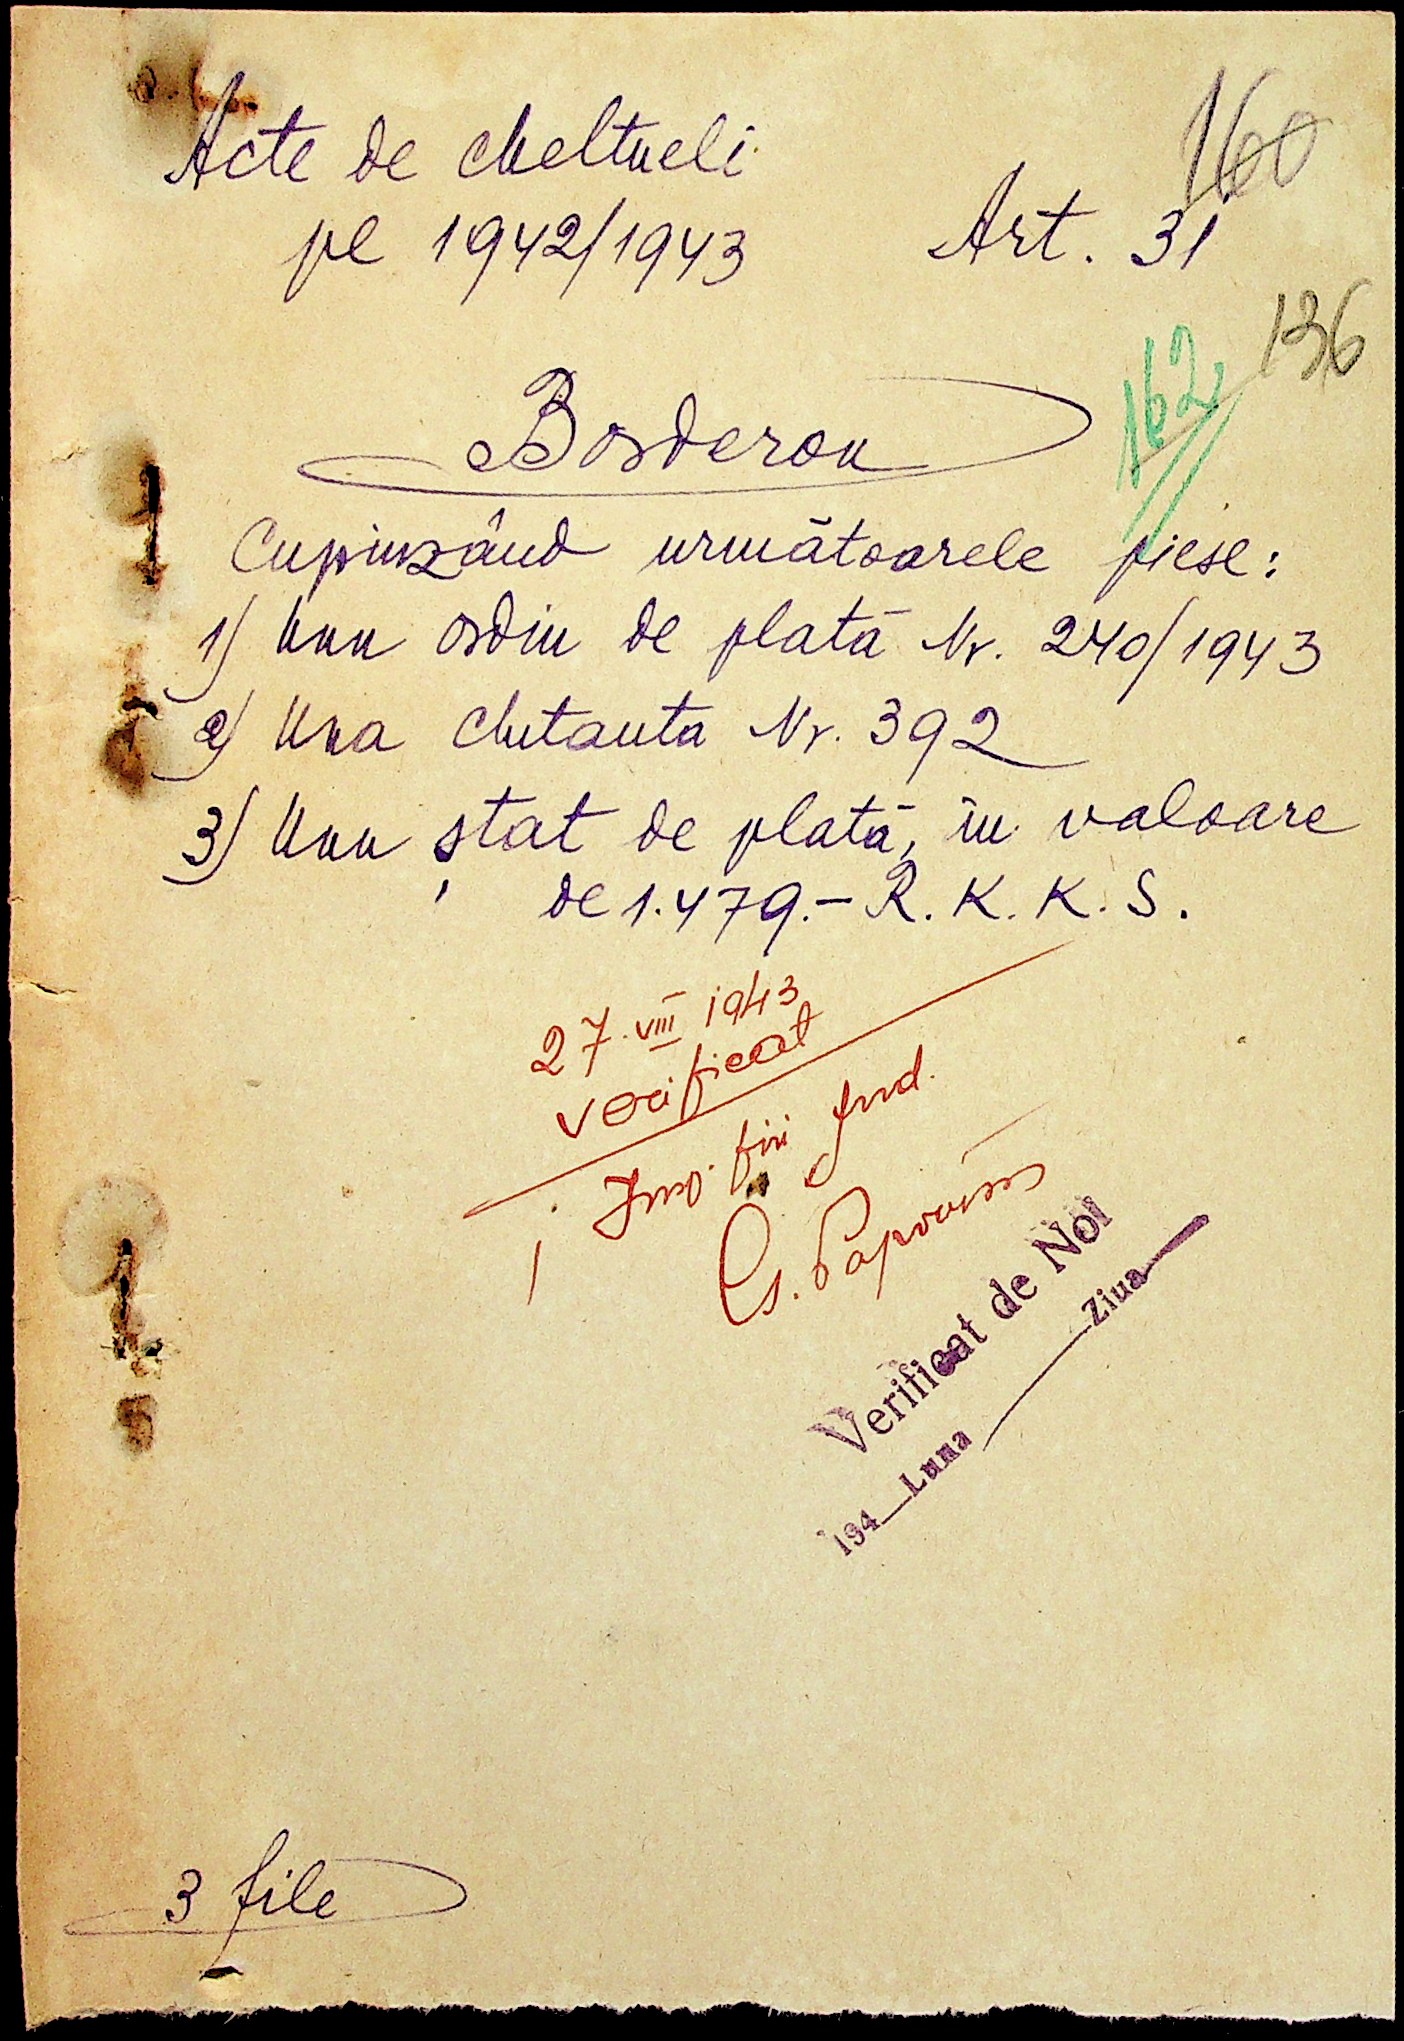 160
Acte de cheltueli
pe 1942/1943 Art. 31
136
162
Borderou
Cuprinzând următoarele piese:
1) Unu ordin de plată Nr. 240/1943
2) Una chitanta Nr. 392
3) Unu ștat de plată, în valoare
de 1.479.- R. K. K. S.
27.VIII 1943
verificat
Insp. fin Jud.
Verificat de Noi
194_ Luna ___ Ziua
3 file